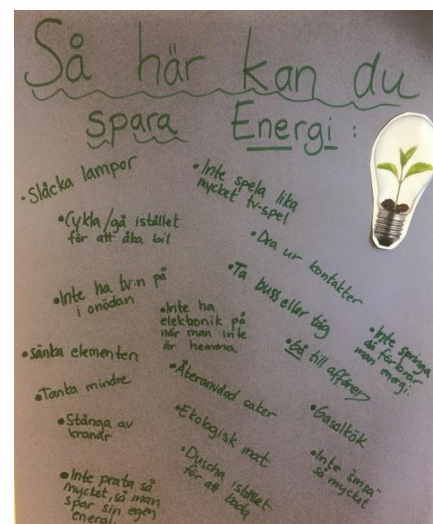 Så här kan du
spara Energi:
•Släcka lampor
•Cykla/gå istället
för att åka bil
•Inte ha tv:n på
i onödan
•sänka elementen
•Tanka mindre
•Stänga av
kranar
•Inte prata så
mycket, så man
spar sin egen
energi
•Inte spela lika
mycket tv-spel
•Dra ur kontakter
•Ta buss eller tåg
•Inte ha
elektronik på
när man inte
är hemma
•Gå till affären
•Återanvänd saker
•Ekologisk mat
•Duscha istället
för att bada
•Inte springa
då förbrar
man energi.
•Gasolkök
•Inte
så mycket